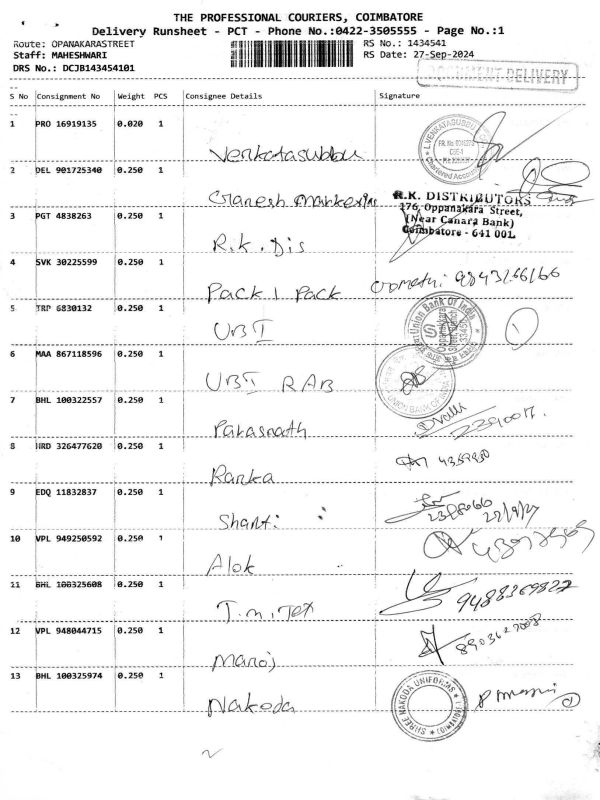 THE PROFESSIONAL COURIERS, COIMBATORE
Delivery Runsheet - PCT - Phone No.:0422-3505555 - Page No.:1
Route: OPANAKARASTREET RS No.: 1434541
Staff: MAHESHWARI RS Date: 27-Sep-2024
DRS No.: DCJB143454101
DOCUMENT DELIVERY
S No Consignment No Weight PCS Consignee Details Signature
1 PRO 16919135 0.020 1
Venkatasubbu
L.VENKATASUBBU
Chartered Accountant
2 DEL 901725340 0.250 1
Ganesh Marketing
R.K. DISTRIBUTORS
176, Oppanakara Street,
(Near Canara Bank)
Coimbatore - 641 001.
3 PGT 4838263 0.250 1
R.K. Dis
4 SVK 30225599 0.250 1
Pack 1 Pack
5 TRP 6830132 0.250 1
UBI
Union Bank Of India
6 MAA 867118596 0.250 1
UBI RAB
UNION BANK OF INDIA
7 BHL 100322557 0.250 1
Parasnath
8 HRD 326477620 0.250 1
Ranka
9 EDQ 11832837 0.250 1
Shanti
10 VPL 949250592 0.250 1
Alok
11 BHL 100325608 0.250 1
T.M.Tex
9488369827
12 VPL 948044715 0.250 1
Manoj
13 BHL 100325974 0.250 1
Nakoda
SHREE NAKODA UNIFORMS